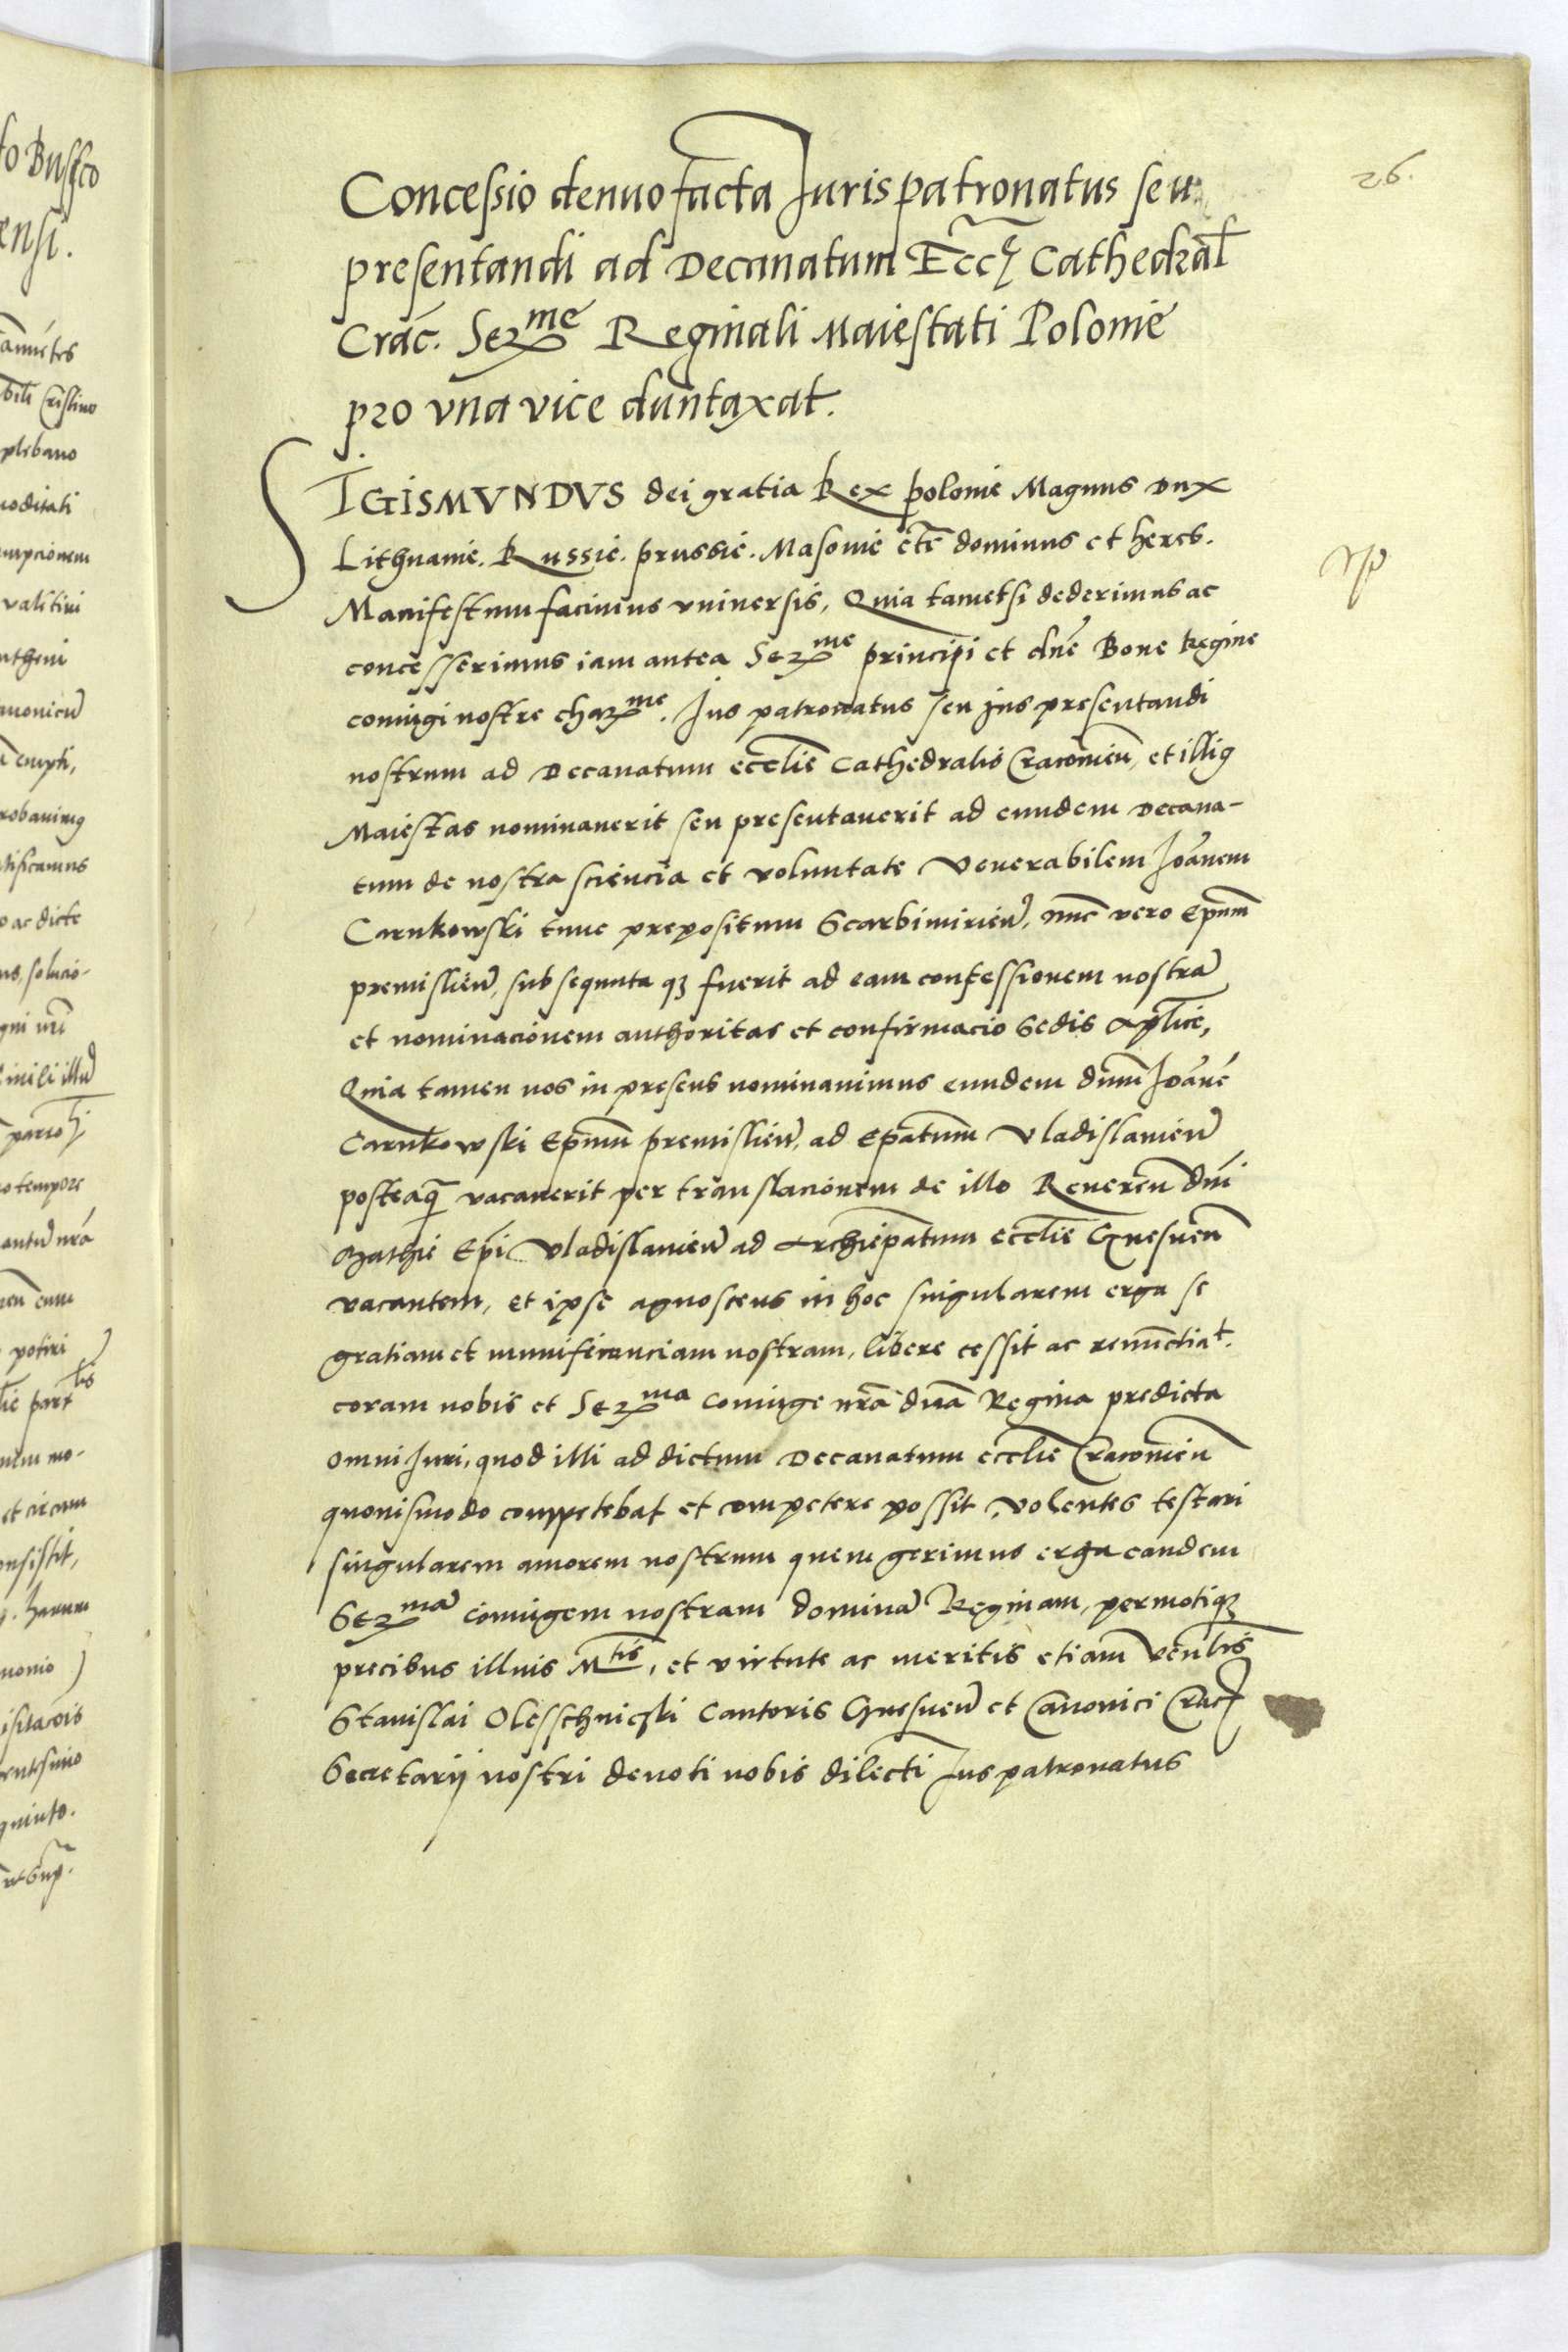 26.
Concessio denuo facta Iurispatronatus seu
presentandi ad Decanatum Eccl Cathedral
Crac. Serme Reginali Maiestati Polonie
pro vna vice duntaxat.
SIGISMVNDVS dei gratia Rex polonie Magnus Dux
Lithuanie. Russie. prussie. Masouie etc dominus et heres.
Manifestum facimus vniuersis, Quia tametsi dederimus ac
concesserimus iam antea Serme principi et dne Bone Regine
coniugi nostre charme. Ius patronatus seu ius presentandi
nostrum ad Decanatum ecclie Cathedralis Cracouien, et illius
Maiestas nominauerit seu presentauerit ad eundem Decana-
tum de nostra sciencia et voluntate Venerabilem Ioanem
Carnkowski tunc prepositum Scarbimirien, nunc vero Epum
premislien, subsequuta q3 fuerit ad eam confessionem nostra
et nominacionem authoritas et confirmacio Sedis Aplice,
Quia tamen nos in presens nominauimus eundem dnum Ioane
Carnkowski Epum premislien, ad Epatum Vladislauien
posteaq vacauerit per translacionem de illo Reueren dni
Mathie Epi Vladislauien ad Archiepatum ecclie Gnesnen
vacantem, et ipse agnoscens in hoc singularem erga se
gratiam et munificenciam nostram, libere cessit ac renunctiat.
coram nobis et Serma Coniuge nra dna Regina predicta
omni Iuri, quod illi ad dictum Decanatum ecclie Cracouien
quouismodo competebat et competere possit, volentes testari
singularem amorem nostrum quem gerimus erga eandem
Serma Coniugem nostram domina Reginam, permotiq3
precibus illius Mtis, et virtute ac meritis etiam Venlis
Stanislai Olesschnicski Cantoris Gnesnen et Canonici Crac
Secretarij nostri deuoti nobis dilecti Ius patronatus